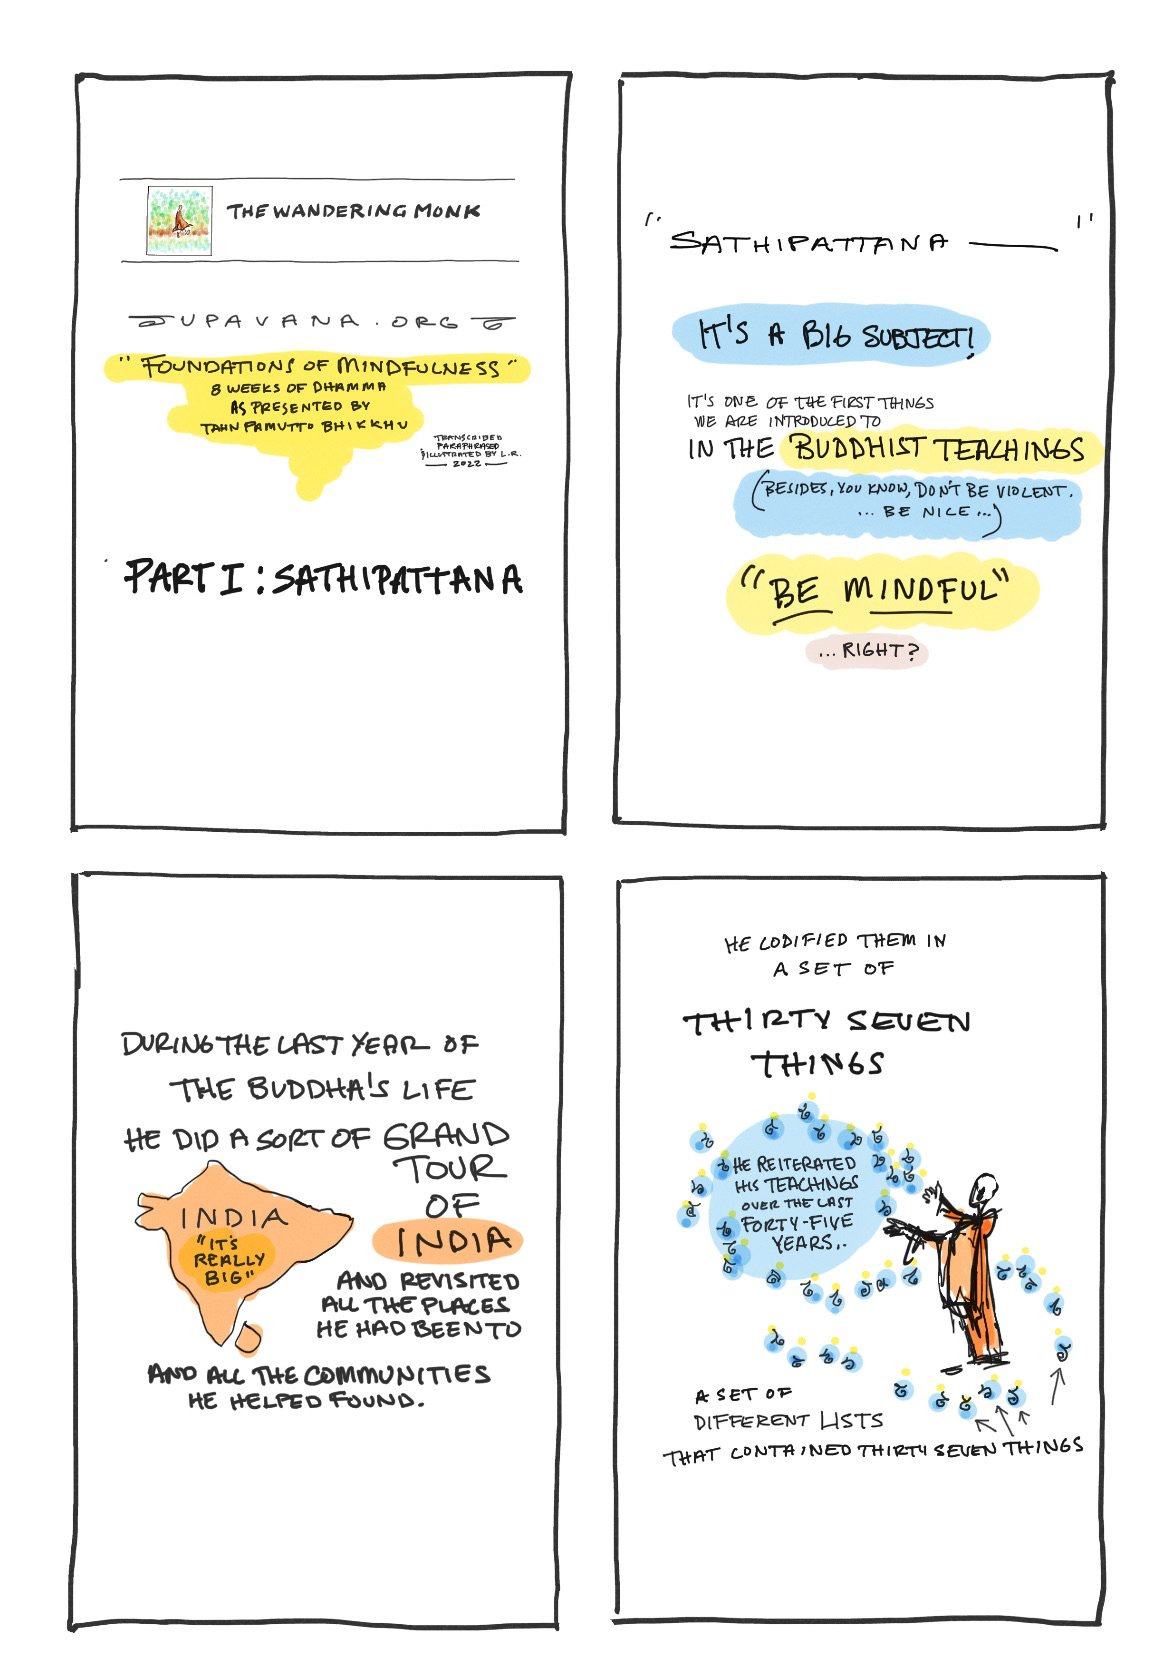 THE WANDERING MONK
UPAVANA.ORG
"FOUNDATIONS OF MINDFULNESS"
8 WEEKS OF DHAMMA
AS PRESENTED BY
TAHN PAMUTTO BHIKKHU
TRANSCRIBED
PARAPHRASED
& ILLUSTRATED BY L.R.
2022
PART I : SATHIPATTANA
"SATHIPATTANA —"
IT'S A BIG SUBJECT!
IT'S ONE OF THE FIRST THINGS
WE ARE INTRODUCED TO
IN THE BUDDHIST TEACHINGS
(BESIDES, YOU KNOW, DON'T BE VIOLENT.
... BE NICE...)
"BE MINDFUL"
...RIGHT?
DURING THE LAST YEAR OF
THE BUDDHA'S LIFE
HE DID A SORT OF GRAND
TOUR
OF
INDIA
INDIA
"IT'S
REALLY
BIG"
AND REVISITED
ALL THE PLACES
HE HAD BEEN TO
AND ALL THE COMMUNITIES
HE HELPED FOUND.
HE CODIFIED THEM IN
A SET OF
THIRTY SEVEN
THINGS
HE REITERATED
HIS TEACHINGS
OVER THE LAST
FORTY-FIVE
YEARS...
A SET OF
DIFFERENT LISTS
THAT CONTAINED THIRTY SEVEN THINGS